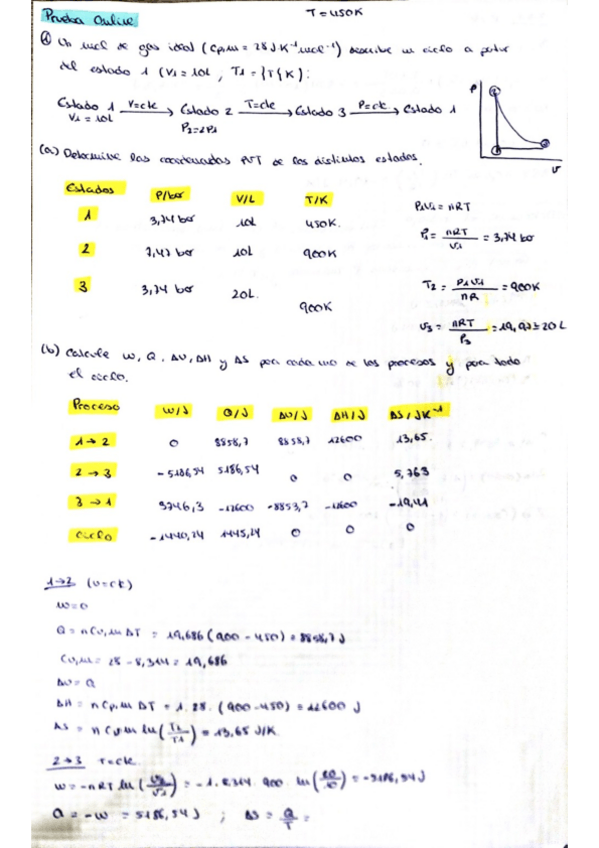 Prueba Online
T = 450K
① Un mol de gas ideal (Cp,m = 28 J·K⁻¹mol⁻¹) describe un ciclo a partir
del estado 1 (V1 = 10L, T1 = {T{K}:
Estado 1 V=cte → Estado 2 T=cte → Estado 3 P=cte → Estado 1
V1 = 10L P2=2P1
P
V
(a) Determine las coordenadas PVT de los distintos estados.
Estados P/bar V/L T/K
1 3,74 bar 10L 450K.
2 7,47 bar 10L 900K
3 3,74 bar 20L. 900K
P1V1 = nRT
P1 = nRT/V1 = 3,74 bar
T2 = P1V1/nR = 900K
V3 = nRT/P3 = 19,97≈20L
(b) Calcule W, Q, ΔU, ΔH y ΔS para cada uno de los procesos y para todo
el ciclo.
Proceso W/J Q/J ΔU/J ΔH/J ΔS/JK⁻¹
1→2 0 8858,7 8858,7 12600 13,65.
2→3 -5186,54 5186,54 0 0 5,763
3→1 3746,3 -12600 -8853,7 -12600 -19,41
Ciclo -1440,24 1445,24 0 0 0
1→2 (V=cte)
W=0
Q = nCv,m ΔT = 19,686 (900-450) = 8858,7 J
Cv,m = 28 - 8,314 = 19,686
ΔU = Q
ΔH = nCp,m ΔT = 1·28·(900-450) = 12600 J
ΔS = nCv,m ln(T2/T1) = 13,65 J/K
2→3 T=cte.
W = -nRT ln(V2/V1) = -1·8,314·900·ln(20/10) = -5186,54 J
Q = -W = 5186,54 J ; ΔS = Q/T =